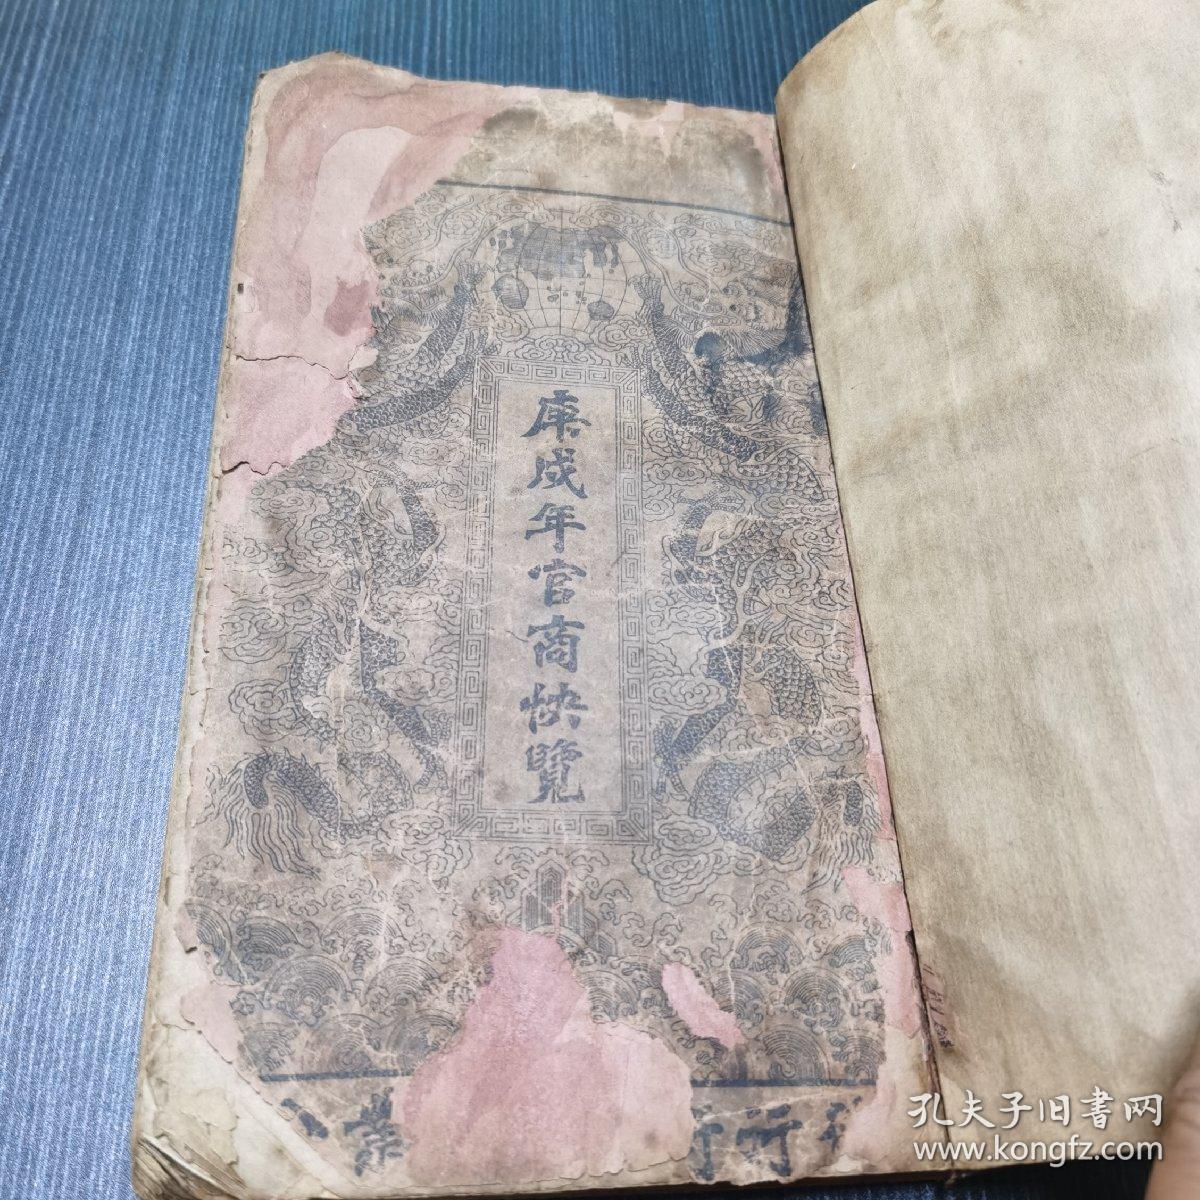 庚戌年官商快覽
業
行
孔夫子旧書网
www.kongfz.com